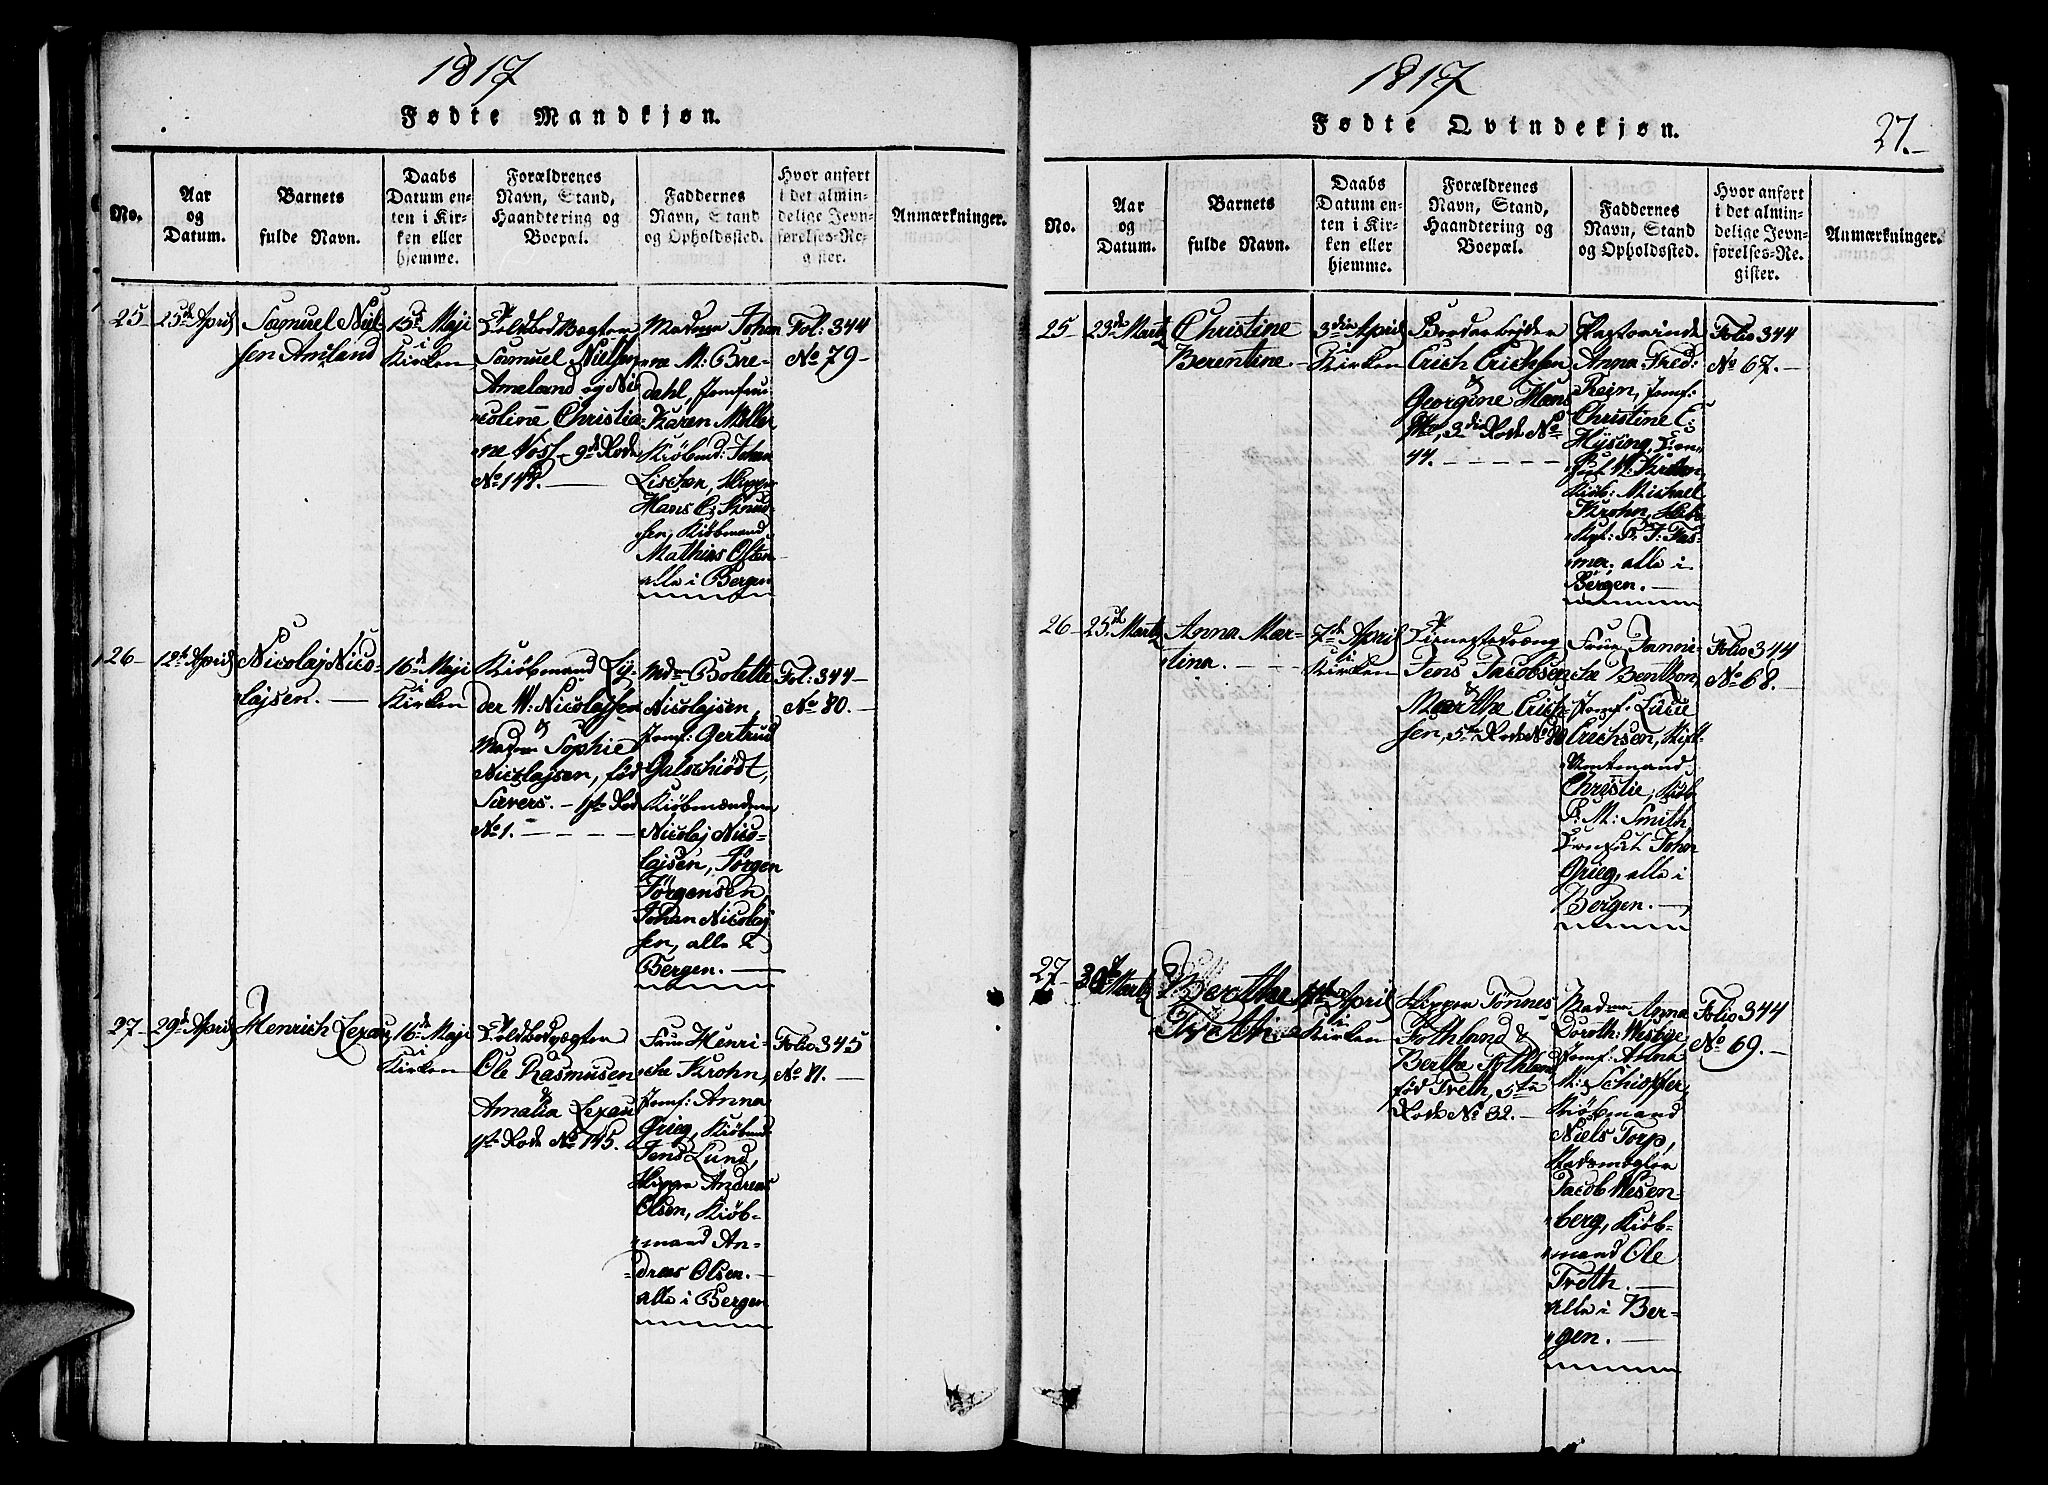 1817
Fødte Mandkjøn.
No.
Aar
og
Datum.
Barnets
fulde Navn.
Daabs
Datum en-
ten i Kir-
ken eller
hjemme.
Forældrenes
Navn, Stand,
Haandtering og
Boepæl.
Faddernes
Navn, Stand
og Opholdssted.
Hvor anført
i det almin-
delige Jevn-
førelses-Re-
gister.
Anmærkninger.
25
25de April
Samuel Niel-
sen Amland
15de Maji
i
Kirken
Samuel Nielsen
Ameland og Ni-
coline Christia-
ne Voss 9de Rode
No 148.
Madme Johan-
ne M: Bre-
dahl, Jomfru
Karen Möller
Kiöbmd: Johan
Hans C: Knud-
sen, Kiöbmand
Mathias Osten
alle i Bergen
Fol: 344
No 79
26
12te April
Nicolaj Nico-
lajsen.
16de Maji
i
Kirken
Kiöbmand Ly-
der W: Nicolajsen
&
Madme Sophie
Nicolajsen, föd
Sievers. 1ste Rode
No 1.
Mdme Bolette
Nicolajsen,
Jomf: Gertrud
Galschiödt,
Kiöbmændene
Nicolaj Nico-
lajsen, Jörgen
Jörgensen
Johan Nicolaj-
sen, alle i
Bergen.
Fol: 344
No 80.
27
29de April
Henrich Lexau
16de Maji
i
Kirken
Ole Rasmusen
&
Amalia Lexau
1ste Rode No 145.
Frue Henri-
che Krohn,
Jomf: Anna
Grieg, Kiöbmd:
Jens Lund,
Skipper Andreas
Olsen, Kiöb-
mand An-
dreas Olsen.
alle i Bergen
Folio 345
No 81.
1817
Fødte Qvindekjøn.
27.
No.
Aar
og
Datum.
Barnets
fulde Navn.
Daabs
Datum en-
ten i Kir-
ken eller
hjemme.
Forældrenes
Navn, Stand,
Haandtering og
Boepæl.
Faddernes
Navn, Stand
og Opholdssted.
Hvor anført
i det almin-
delige Jevn-
førelses-Re-
gister.
Anmærkninger.
25
23de Martz
Christine
Berentine
3die April
i
Kirken
Erich Erichsen
&
Georgine Hans-
3die Rode No
44.
Pastorinde
Anna Fred:
Rein, Jomf:
Christine C:
Hysing,
Kiöb: Michael
Krohn,
P: J: Fas-
mer, alle i
Bergen.
Folio 344
No 67.
26
25de Martz
Anna Mar-
tina.
7de April
i
Kirken
Jens Jacobsen
&
Marthe Erich-
sen, 5te Rode No 80
Frue Danni-
Benthon,
Jomf: Lucie
Erichsen, Stift-
Amtmand
Christie, Kiöb
P: M: Smith
Consul John
Grieg, alle i
Bergen.
Folio 344
No 68.
27
30de Martz
Berthe
Treth
April
i
Kirken
Skipper Tönnes
Fothland &
Berthe Fothland
föd Treth, 5te
Rode No 32.
Madme Anna
Doroth: Wesöge,
Jomf: Anna
M: Schiöffer,
Kiöbmand
Niels Torp,
Jacob Wesen-
berg, Kiöb-
mand Ole
Treth.
alle i Ber-
gen.
Folio 344
No 69.